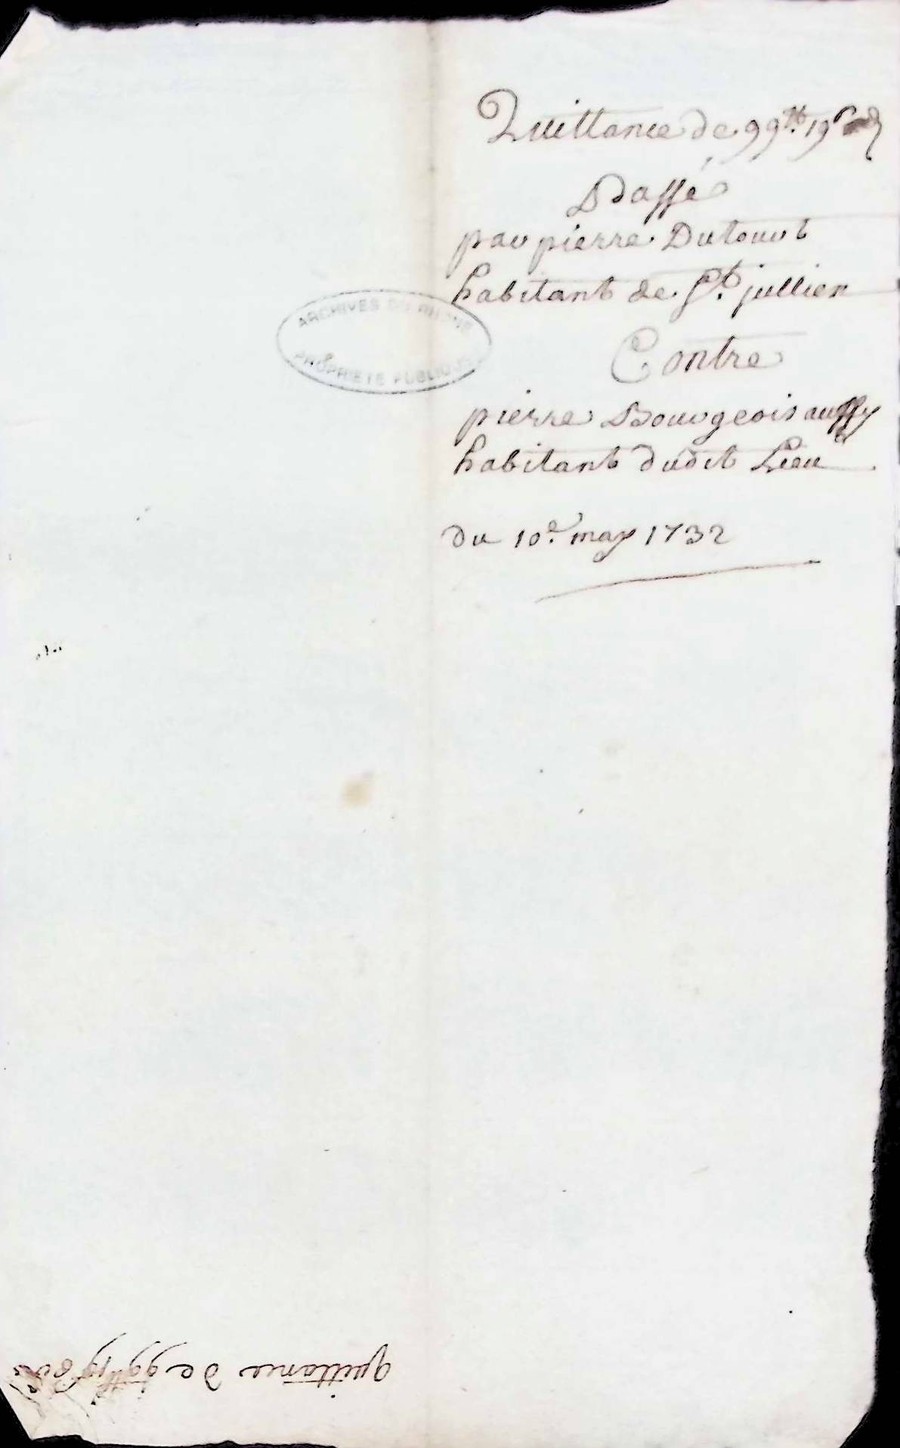 Quittance de 99ᵗᵗ 19ˢ
Passé
par pierre Dutourt
habitant de Sᵗ. jullien
Contre
pierre Bourgeois aussy
habitant dudit Lieu
du 10ᵉ. may 1732
ARCHIVES DU RHONE
PROPRIÉTÉ PUBLIQUE
quittance de 99ᵗᵗ 19ˢ